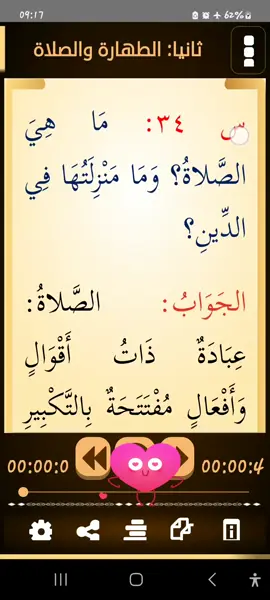 09:17
62%
ثانيا: الطهارة والصلاة
س ٣٤: مَا هِيَ
الصَّلَاةُ؟ وَمَا مَنْزِلَتُهَا فِي
الدِّينِ؟
الجَوَابُ: الصَّلَاةُ:
عِبَادَةٌ ذَاتُ أَقْوَالٍ
وَأَفْعَالٍ مُفْتَتَحَةٌ بِالتَّكْبِيرِ
00:00:0
00:00:4